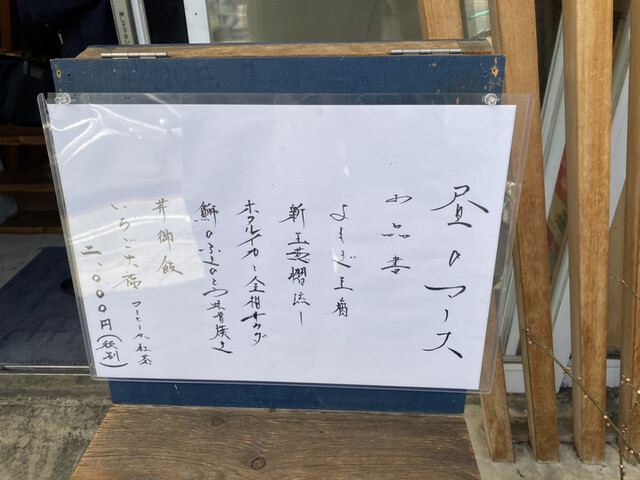 昼のコース
お品書
よもぎ豆腐
新玉葱摺流し
ホタルイカと金柑サラダ
鰤のふきのとう味噌焼き
丼御飯
いちご大福 コーヒーか紅茶
二、〇〇〇円(税別)